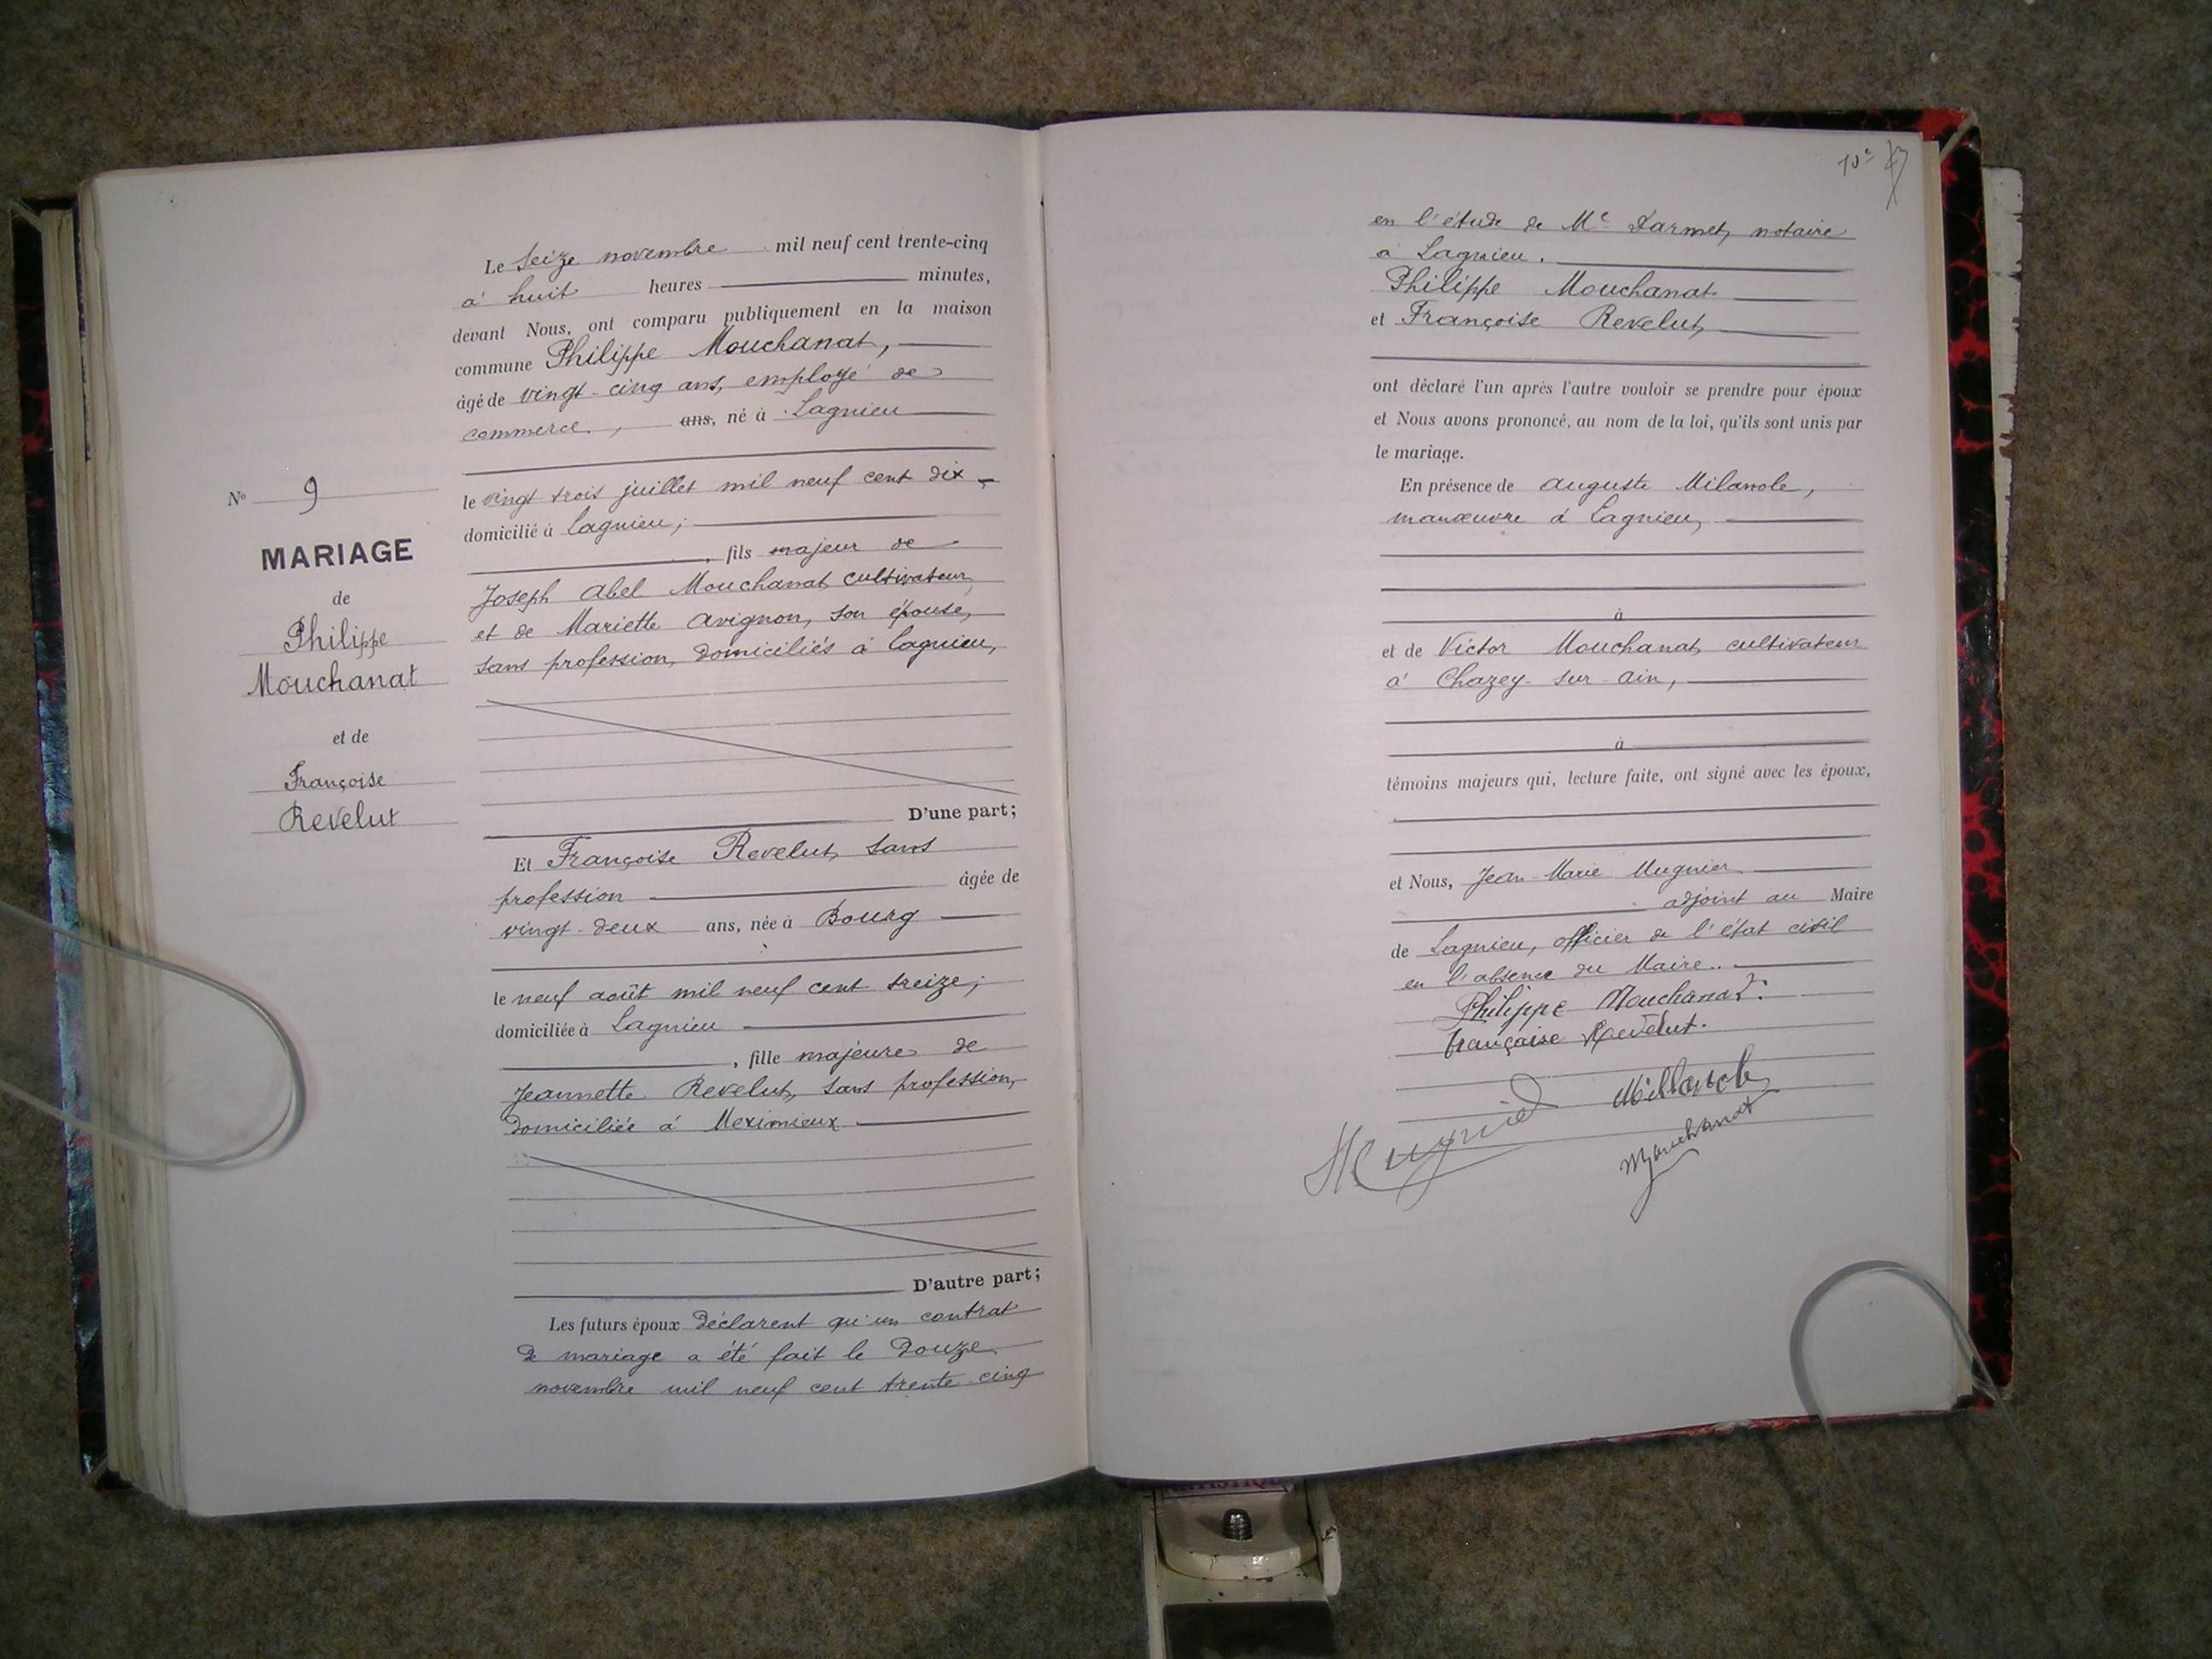 N° 9
MARIAGE
de
Philippe
Mouchanat
et de
Françoise
Revelut
Le seize novembre mil neuf cent trente-cinq
à huit heures minutes,
devant Nous, ont comparu publiquement en la maison
commune Philippe Mouchanat,
âgé de vingt-cinq ans, employé de
commerce, ans, né à Lagnieu
le vingt trois juillet mil neuf cent dix
domicilié à Lagnieu;
, fils majeur de
Joseph Abel Mouchanat, cultivateur,
et de Mariette Avignon, son épouse,
sans profession, domiciliés à Lagnieu,
D'une part;
Et Françoise Revelut, sans
profession âgée de
vingt-deux ans, née à Bourg
le neuf août mil neuf cent treize;
domiciliée à Lagnieu
, fille majeure de
Jeannette Revelut, sans profession,
domiciliée à Meximieux
D'autre part;
Les futurs époux déclarent qu'un contrat
de mariage a été fait le douze
novembre mil neuf cent trente-cinq
en l'étude de Me Darmet, notaire
à Lagnieu.
Philippe Mouchanat
et Françoise Revelut,
ont déclaré l'un après l'autre vouloir se prendre pour époux
et Nous avons prononcé, au nom de la loi, qu'ils sont unis par
le mariage.
En présence de Auguste Milanole,
manœuvre à Lagnieu,
à
et de Victor Mouchanat, cultivateur
à Chazey-sur-Ain,
à
témoins majeurs qui, lecture faite, ont signé avec les époux,
et Nous, Jean-Marie Mugnier
adjoint au Maire
de Lagnieu, officier de l'état civil
en l'absence du Maire.
Philippe Mouchanat.
Françoise Revelut.
Mugnier
Mouchanat